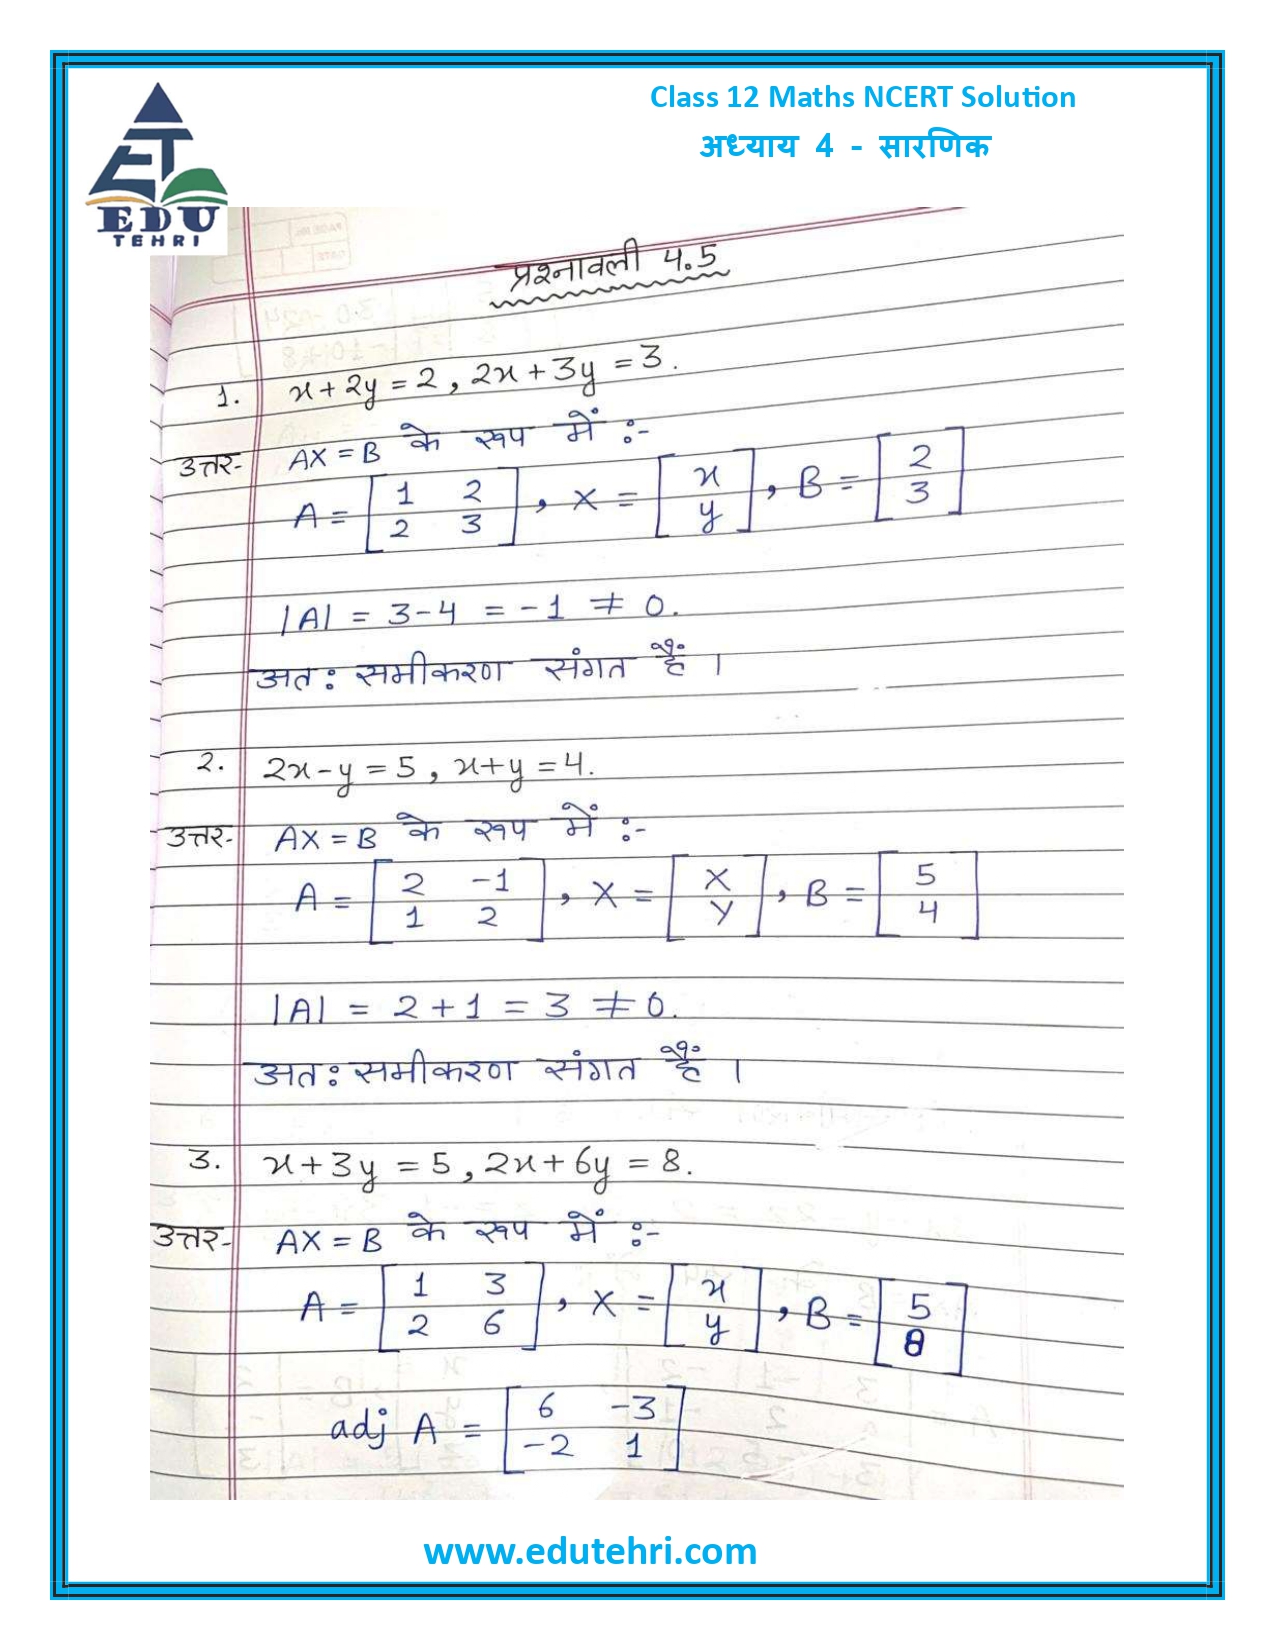 Class 12 Maths NCERT Solution
अध्याय 4 - सारणिक
EDU
TEHRI
प्रश्नावली 4.5
1. x+2y=2, 2x+3y=3.
उत्तर- AX=B के रूप में :-
A = [1 2
2 3], X = [x
y], B = [2
3]
|A| = 3-4 = -1 ≠ 0.
अत: समीकरण संगत हैं।
2. 2x-y=5, x+y=4.
उत्तर- AX=B के रूप में :-
A = [2 -1
1 2], X = [X
Y], B = [5
4]
|A| = 2+1 = 3 ≠ 0.
अत: समीकरण संगत हैं।
3. x+3y=5, 2x+6y=8.
उत्तर- AX=B के रूप में :-
A = [1 3
2 6], X = [x
y], B = [5
8]
adj A = [6 -3
-2 1]
www.edutehri.com